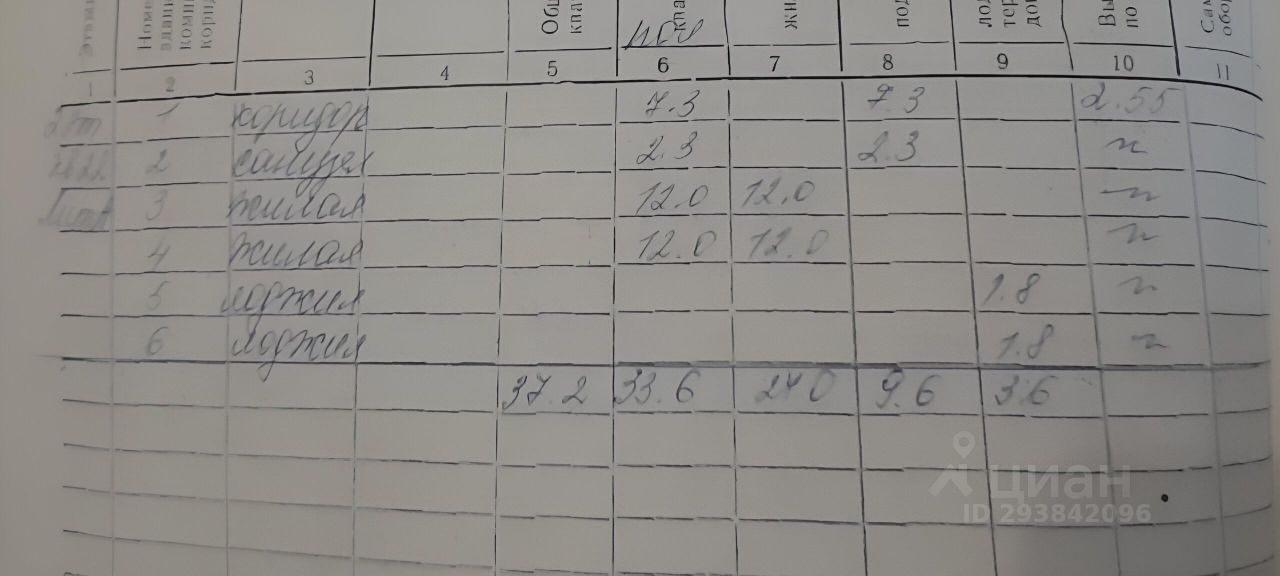 Общ
квар
жи
под
лод
тер
дом
Вы
по
Сам
обор
Номе
здани
комн
корид
1 2 3 4 5 6 7 8 9 10 11
1 коридор 7.3 7.3 2.55
2 санузел 2.3 2.3 "
3 жилая 12.0 12.0 "
4 жилая 12.0 12.0 "
5 лоджия 1.8 "
6 лоджия 1.8 "
37.2 33.6 24.0 9.6 3.6
циан
ID 293842096